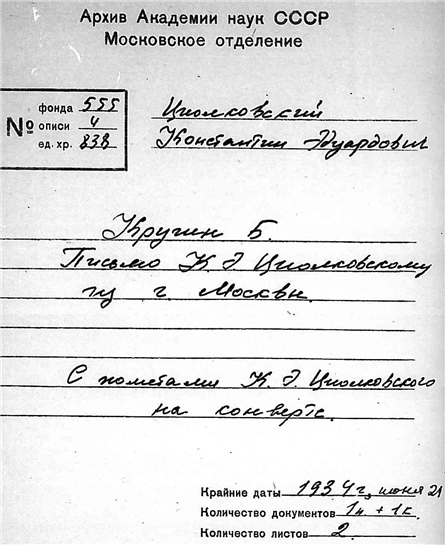 Архив Академии наук СССР
Московское отделение
№
фонда 555
описи 4
ед. хр. 838
Циолковский
Константин Эдуардович
Кругин Б.
Письмо К. Э. Циолковскому
из г. Москвы.
С пометами К. Э. Циолковского
на конверте.
Крайние даты 1934 г, июня 21
Количество документов 1п. + 1к.
Количество листов 2